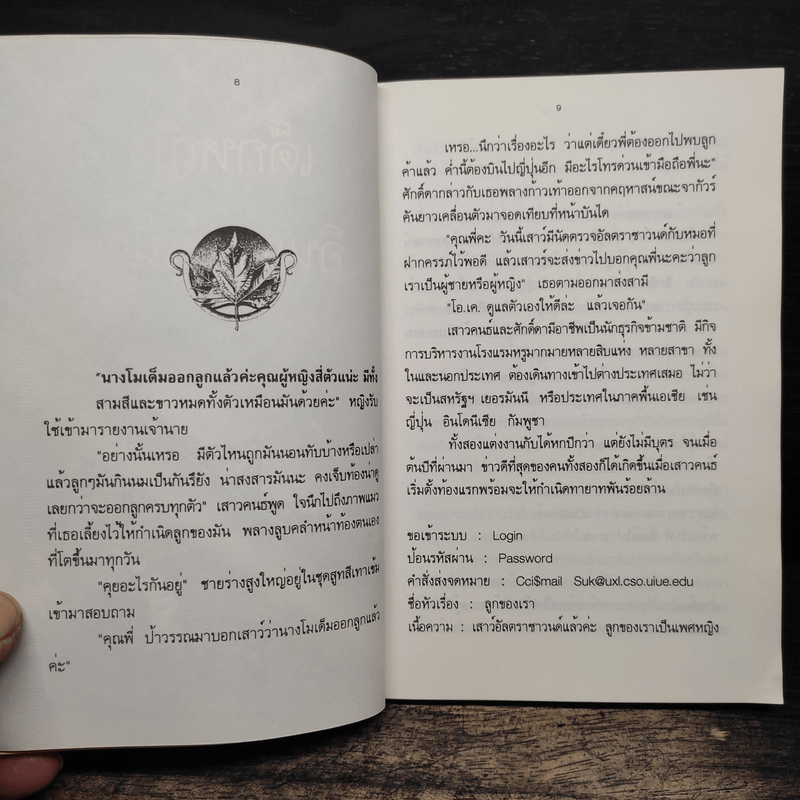 8
"นางโมเด็มออกลูกแล้วค่ะคุณผู้หญิงสี่ตัวแน่ะ มีทั้ง
สามสีและขาวหมดทั้งตัวเหมือนมันด้วยค่ะ" หญิงรับ
ใช้เข้ามารายงานเจ้านาย
"อย่างนั้นเหรอ มีตัวไหนถูกมันนอนทับบ้างหรือเปล่า
แล้วลูกๆมันกินนมเป็นกันรึยัง น่าสงสารมันนะ คงเจ็บท้องน่าดู
เลยกว่าจะออกลูกครบทุกตัว" เสาวคนธ์พูด ใจนึกไปถึงภาพแมว
ที่เธอเลี้ยงไว้ให้กำเนิดลูกของมัน พลางลูบคลำหน้าท้องตนเอง
ที่โตขึ้นมาทุกวัน
"คุยอะไรกันอยู่" ชายร่างสูงใหญ่อยู่ในชุดสูทสีเทาเข้ม
เข้ามาสอบถาม
"คุณพี่ ป้าวรรณมาบอกเสาว์ว่านางโมเด็มออกลูกแล้ว
ค่ะ"
9
เหรอ...นึกว่าเรื่องอะไร ว่าแต่เดี๋ยวพี่ต้องออกไปพบลูก
ค้าแล้ว ค่ำนี้ต้องบินไปญี่ปุ่นอีก มีอะไรโทรด่วนเข้ามือถือพี่นะ"
ศักดิ์ดากล่าวกับเธอพลางก้าวเท้าออกจากคฤหาสน์ขณะจากัวร์
คันยาวเคลื่อนตัวมาจอดเทียบที่หน้าบันได
"คุณพี่คะ วันนี้เสาว์มีนัดตรวจอัลตราซาวนด์กับหมอที่
ฝากครรภ์ไว้พอดี แล้วเสาวร์จะส่งข่าวไปบอกคุณพี่นะคะว่าลูก
เราเป็นผู้ชายหรือผู้หญิง" เธอตามออกมาส่งสามี
"โอ.เค. ดูแลตัวเองให้ดีล่ะ แล้วเจอกัน"
เสาวคนธ์และศักดิ์ดามีอาชีพเป็นนักธุรกิจข้ามชาติ มีกิจ
การบริหารงานโรงแรมหรูมากมายหลายสิบแห่ง หลายสาขา ทั้ง
ในและนอกประเทศ ต้องเดินทางเข้าไปต่างประเทศเสมอ ไม่ว่า
จะเป็นสหรัฐฯ เยอรมันนี หรือประเทศในภาคพื้นเอเชีย เช่น
ญี่ปุ่น อินโดนีเซีย กัมพูชา
ทั้งสองแต่งงานกับได้หกปีกว่า แต่ยังไม่มีบุตร จนเมื่อ
ต้นปีที่ผ่านมา ข่าวดีที่สุดของคนทั้งสองก็ได้เกิดขึ้นเมื่อเสาวคนธ์
เริ่มตั้งท้องแรกพร้อมจะให้กำเนิดทายาทพันร้อยล้าน
ขอเข้าระบบ : Login
ป้อนรหัสผ่าน : Password
คำสั่งส่งจดหมาย : Cci$mail Suk@uxl.cso.uiue.edu
ชื่อหัวเรื่อง : ลูกของเรา
เนื้อความ : เสาว์อัลตราซาวนด์แล้วค่ะ ลูกของเราเป็นเพศหญิง